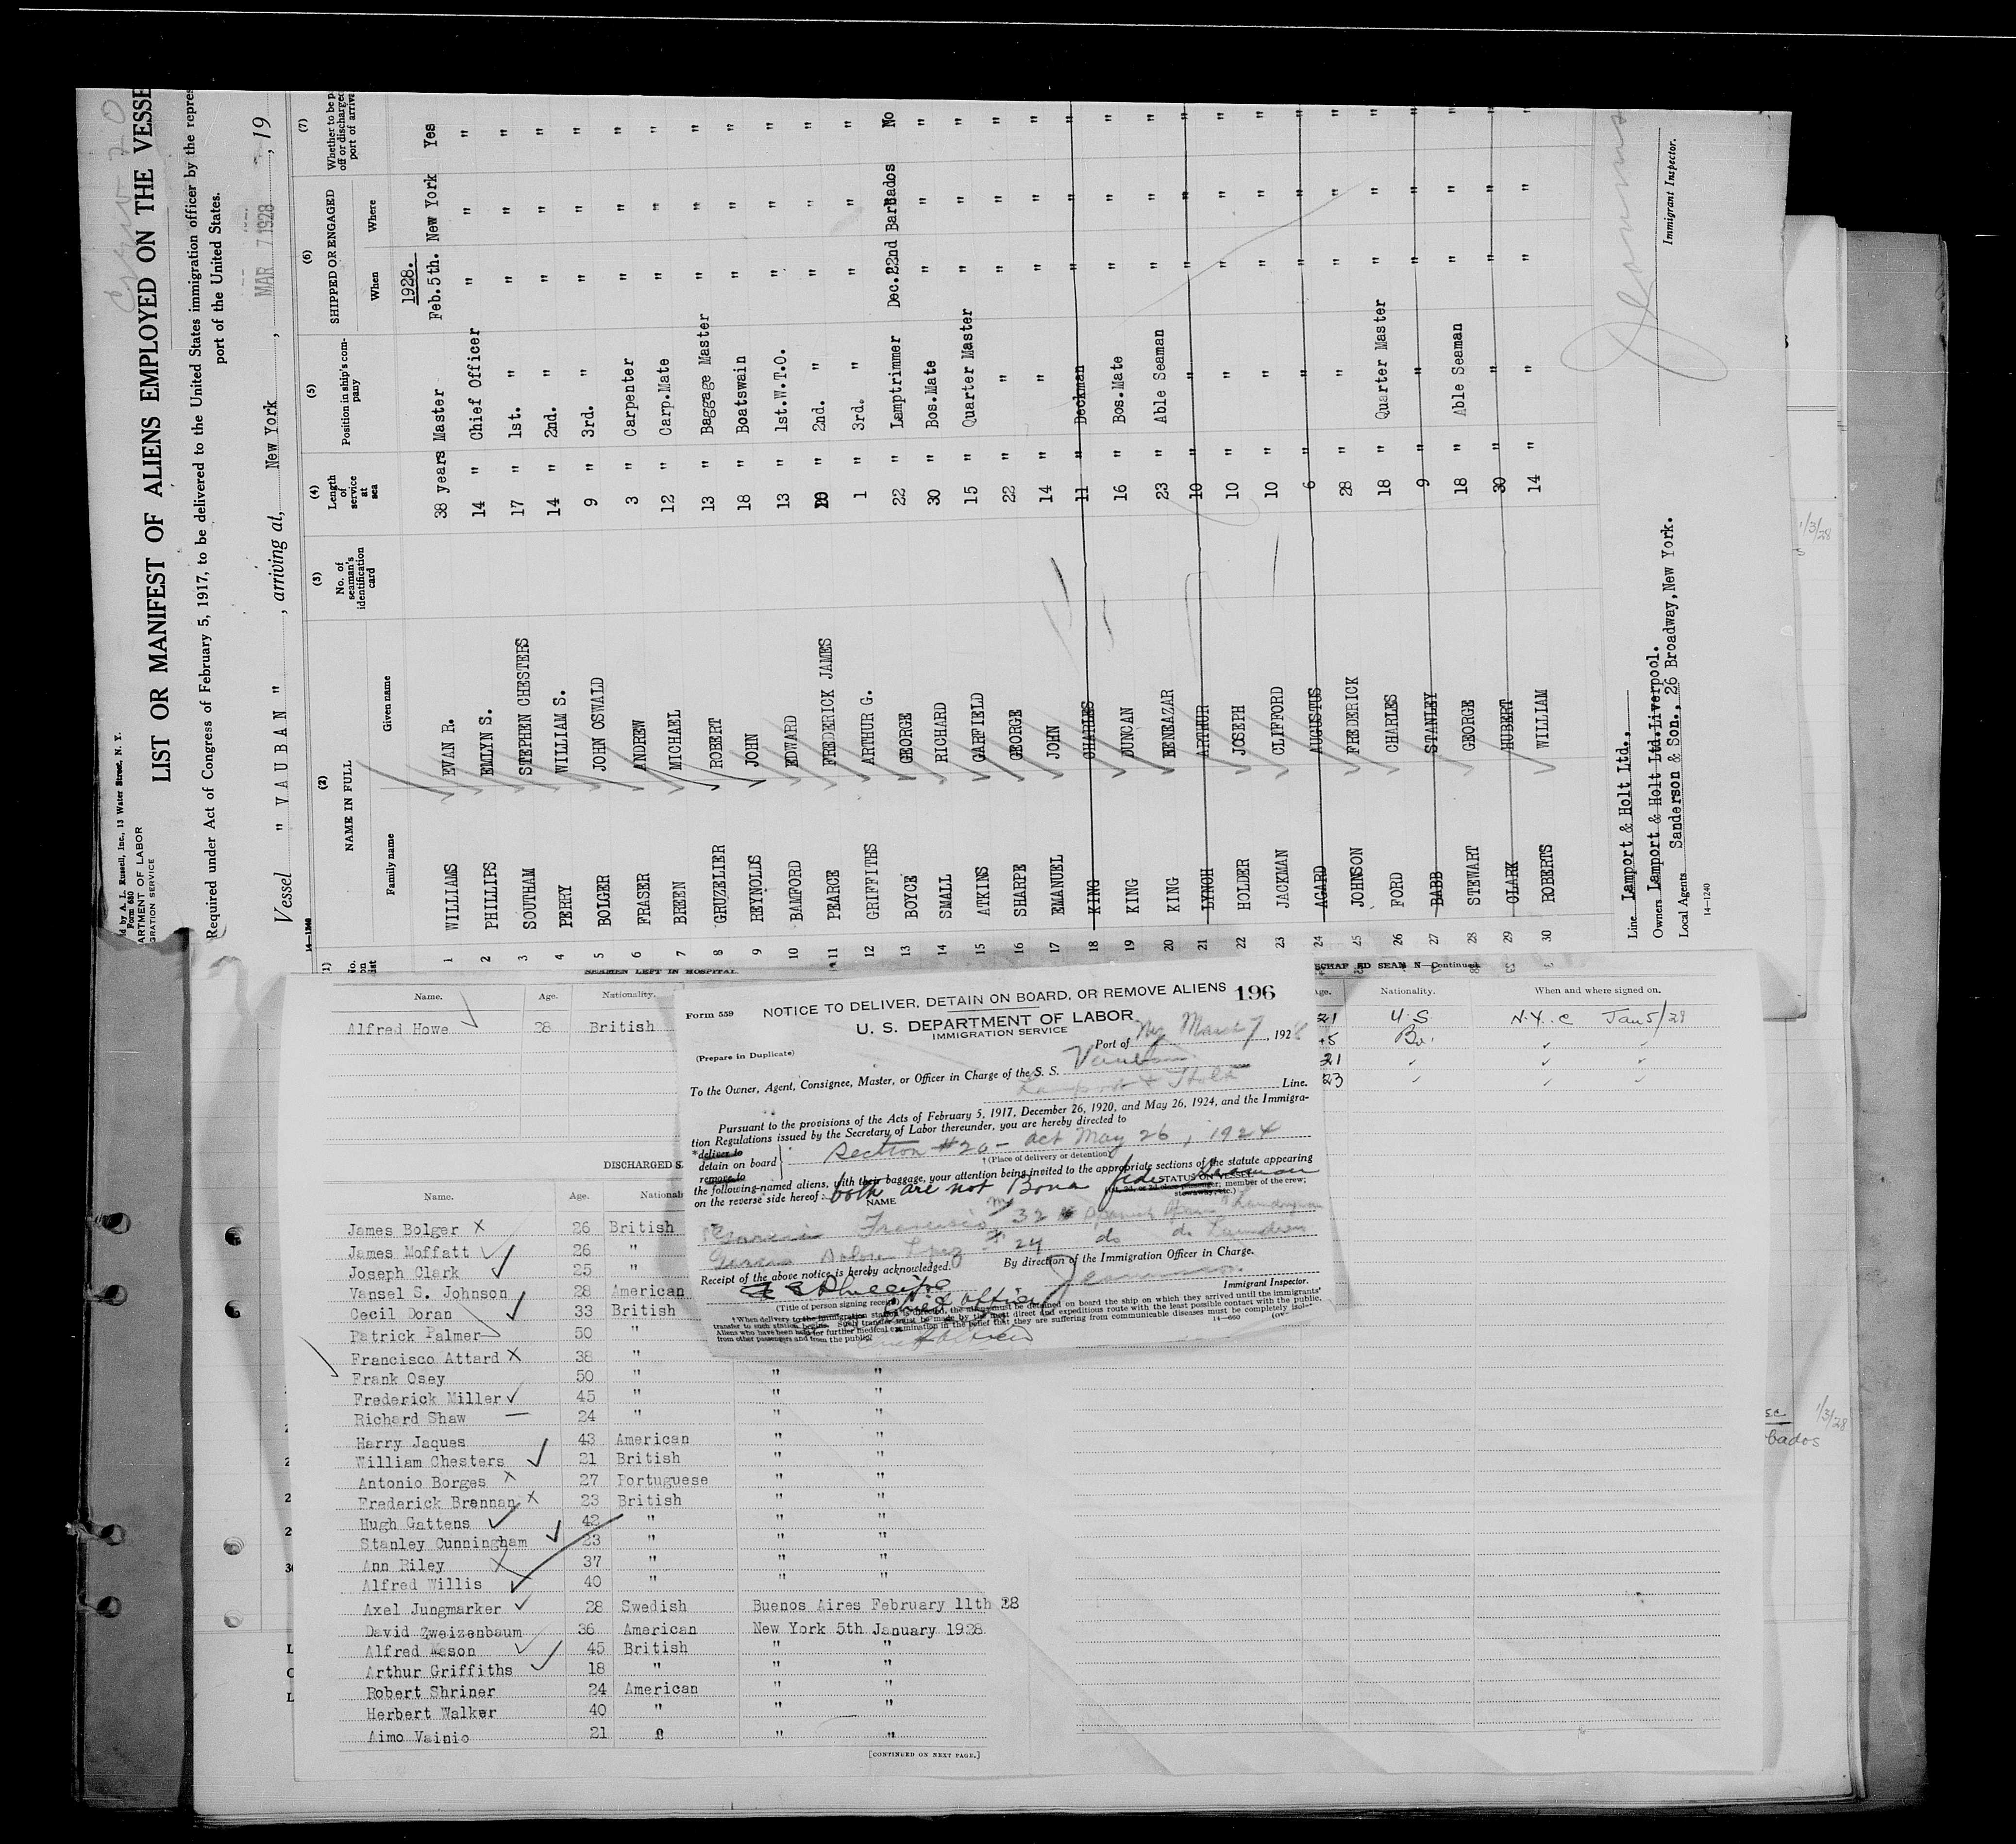 d by A. L. Russell, Inc., 13 Water Street, N. Y.
Form 680
ARTMENT OF LABOR
GRATION SERVICE
LIST OR MANIFEST OF ALIENS EMPLOYED ON THE VESSE
Required under Act of Congress of February 5, 1917, to be delivered to the United States immigration officer by the repres
port of the United States.
Vessel " VAUBAN " , arriving at, New York , MAR 7 1928 , 19
14-1240
(1) (2) (3) (4) (5) (6) (7)
No. on list NAME IN FULL No. of seaman's identification card Length of service at sea Position in ship's company SHIPPED OR ENGAGED Whether to be p off or discharged port of arriva
Family name Given name When Where
1928.
1 WILLIAMS EVAN R. 38 years Master Feb.5th. New York Yes
2 PHILLIPS EMLYN S. 14 " Chief Officer " " "
3 SOUTHAM STEPHEN CHESTERS 17 " 1st. " " " "
4 PERRY WILLIAM S. 14 " 2nd. " " " "
5 BOLGER JOHN OSWALD 9 " 3rd. " " " "
6 FRASER ANDREW 3 " Carpenter " " "
7 BREEN MICHAEL 12 " Carp.Mate " " "
8 GRUZELIER ROBERT 13 " Baggage Master " " "
9 REYNOLDS JOHN 18 " Boatswain " " "
10 BAMFORD EDWARD 13 " 1st.W.T.O. " " "
11 PEARCE FREDERICK JAMES " 2nd. " " " "
12 GRIFFITHS ARTHUR G. 1 " 3rd. " " " "
13 BOYCE GEORGE 22 " Lamptrimmer Dec.22nd Barbados No
14 SMALL RICHARD 30 " Bos.Mate " " "
15 ATKINS GARFIELD 15 " Quarter Master " " "
16 SHARPE GEORGE 22 " " " " "
17 EMANUEL JOHN 14 " " " " "
18 KING CHARLES 11 " Deckman " " "
19 KING DUNCAN 16 " Bos.Mate " " "
20 KING EENEAZAR 23 " Able Seaman " " "
21 LYNCH ARTHUR 10 " " " " "
22 HOLDER JOSEPH 10 " " " " "
23 JACKMAN CLIFFORD 10 " " " " "
24 AGARD AUGUSTUS 6 " " " " "
25 JOHNSON FREDERICK 28 " " " " "
26 FORD CHARLES 18 " Quarter Master " " "
27 BABB STANLEY 9 " " " " "
28 STEWART GEORGE 18 " Able Seaman " " "
29 CLARK HUBERT 30 " " " " "
30 ROBERTS WILLIAM 14 " " " " "
Line Lamport & Holt Ltd.,
Owners Lamport & Holt Ltd.Liverpool.
Local Agents Sanderson & Son., 26 Broadway,New York.
14-1240
Immigrant Inspector.
SEAMEN LEFT IN HOSPITAL
Name. Age. Nationality.
Alfred Howe 28 British
DISCHARGED S
Name. Age. National
James Bolger 26 British
James Moffatt 26 "
Joseph Clark 25 "
Vansel S. Johnson 28 American
Cecil Doran 33 British
Patrick Palmer 50 "
Francisco Attard 38 "
Frank Osey 50 " " "
Frederick Miller 45 " " "
Richard Shaw 24 " " "
Harry Jaques 43 American " "
William Chesters 21 British " "
Antonio Borges 27 Portuguese " "
Frederick Brennan 23 British " "
Hugh Gattens 42 " " "
Stanley Cunningham 23 " " "
Ann Riley 37 " " "
Alfred Willis 40 " " "
Axel Jungmarker 28 Swedish Buenos Aires February 11th 28
David Zweizenbaum 36 American New York 5th January 1928
Alfred Mason 45 British " "
Arthur Griffiths 18 " " "
Robert Shriner 24 American " "
Herbert Walker 40 " " "
Aimo Vainio 21 " " "
[CONTINUED ON NEXT PAGE.]
Form 559
NOTICE TO DELIVER, DETAIN ON BOARD, OR REMOVE ALIENS 196
U. S. DEPARTMENT OF LABOR
IMMIGRATION SERVICE
(Prepare in Duplicate)
Port of NY March 7, 1928
To the Owner, Agent, Consignee, Master, or Officer in Charge of the S. S. Vauban
Lamport & Holt Line.
Pursuant to the provisions of the Acts of February 5, 1917, December 26, 1920, and May 26, 1924, and the Immigra-
tion Regulations issued by the Secretary of Labor thereunder, you are hereby directed to
*deliver to
detain on board
remove to
Section #20 - Act May 26, 1924
†(Place of delivery or detention)
the following-named aliens, with their baggage, your attention being invited to the appropriate sections of the statute appearing
on the reverse side hereof: both are not Bona fide Seaman
NAME STATUS ON VESSEL
member of the crew;
stowaway, etc.)
Francisco 32
24 do do
Receipt of the above notice is hereby acknowledged. By direction of the Immigration Officer in Charge.
E S Phillips
Chief Officer
Immigrant Inspector.
(Title of person signing receipt)
† When delivery to the immigration station is directed, the aliens must be detained on board the ship on which they arrived until the immigrants'
transfer to such station begins. Such transfer must be made by the most direct and expeditious route with the least possible contact with the public.
Aliens who have been held for further medical examination in the belief that they are suffering from communicable diseases must be completely isol-
from other passengers and from the public.
14-660 (ov
SCHAR ED SEAM N—Continued
Age. Nationality. When and where signed on.
21 U.S. N.Y.C Jan 5/28
Br.
21
23
1/3/28
1/3/28
bados